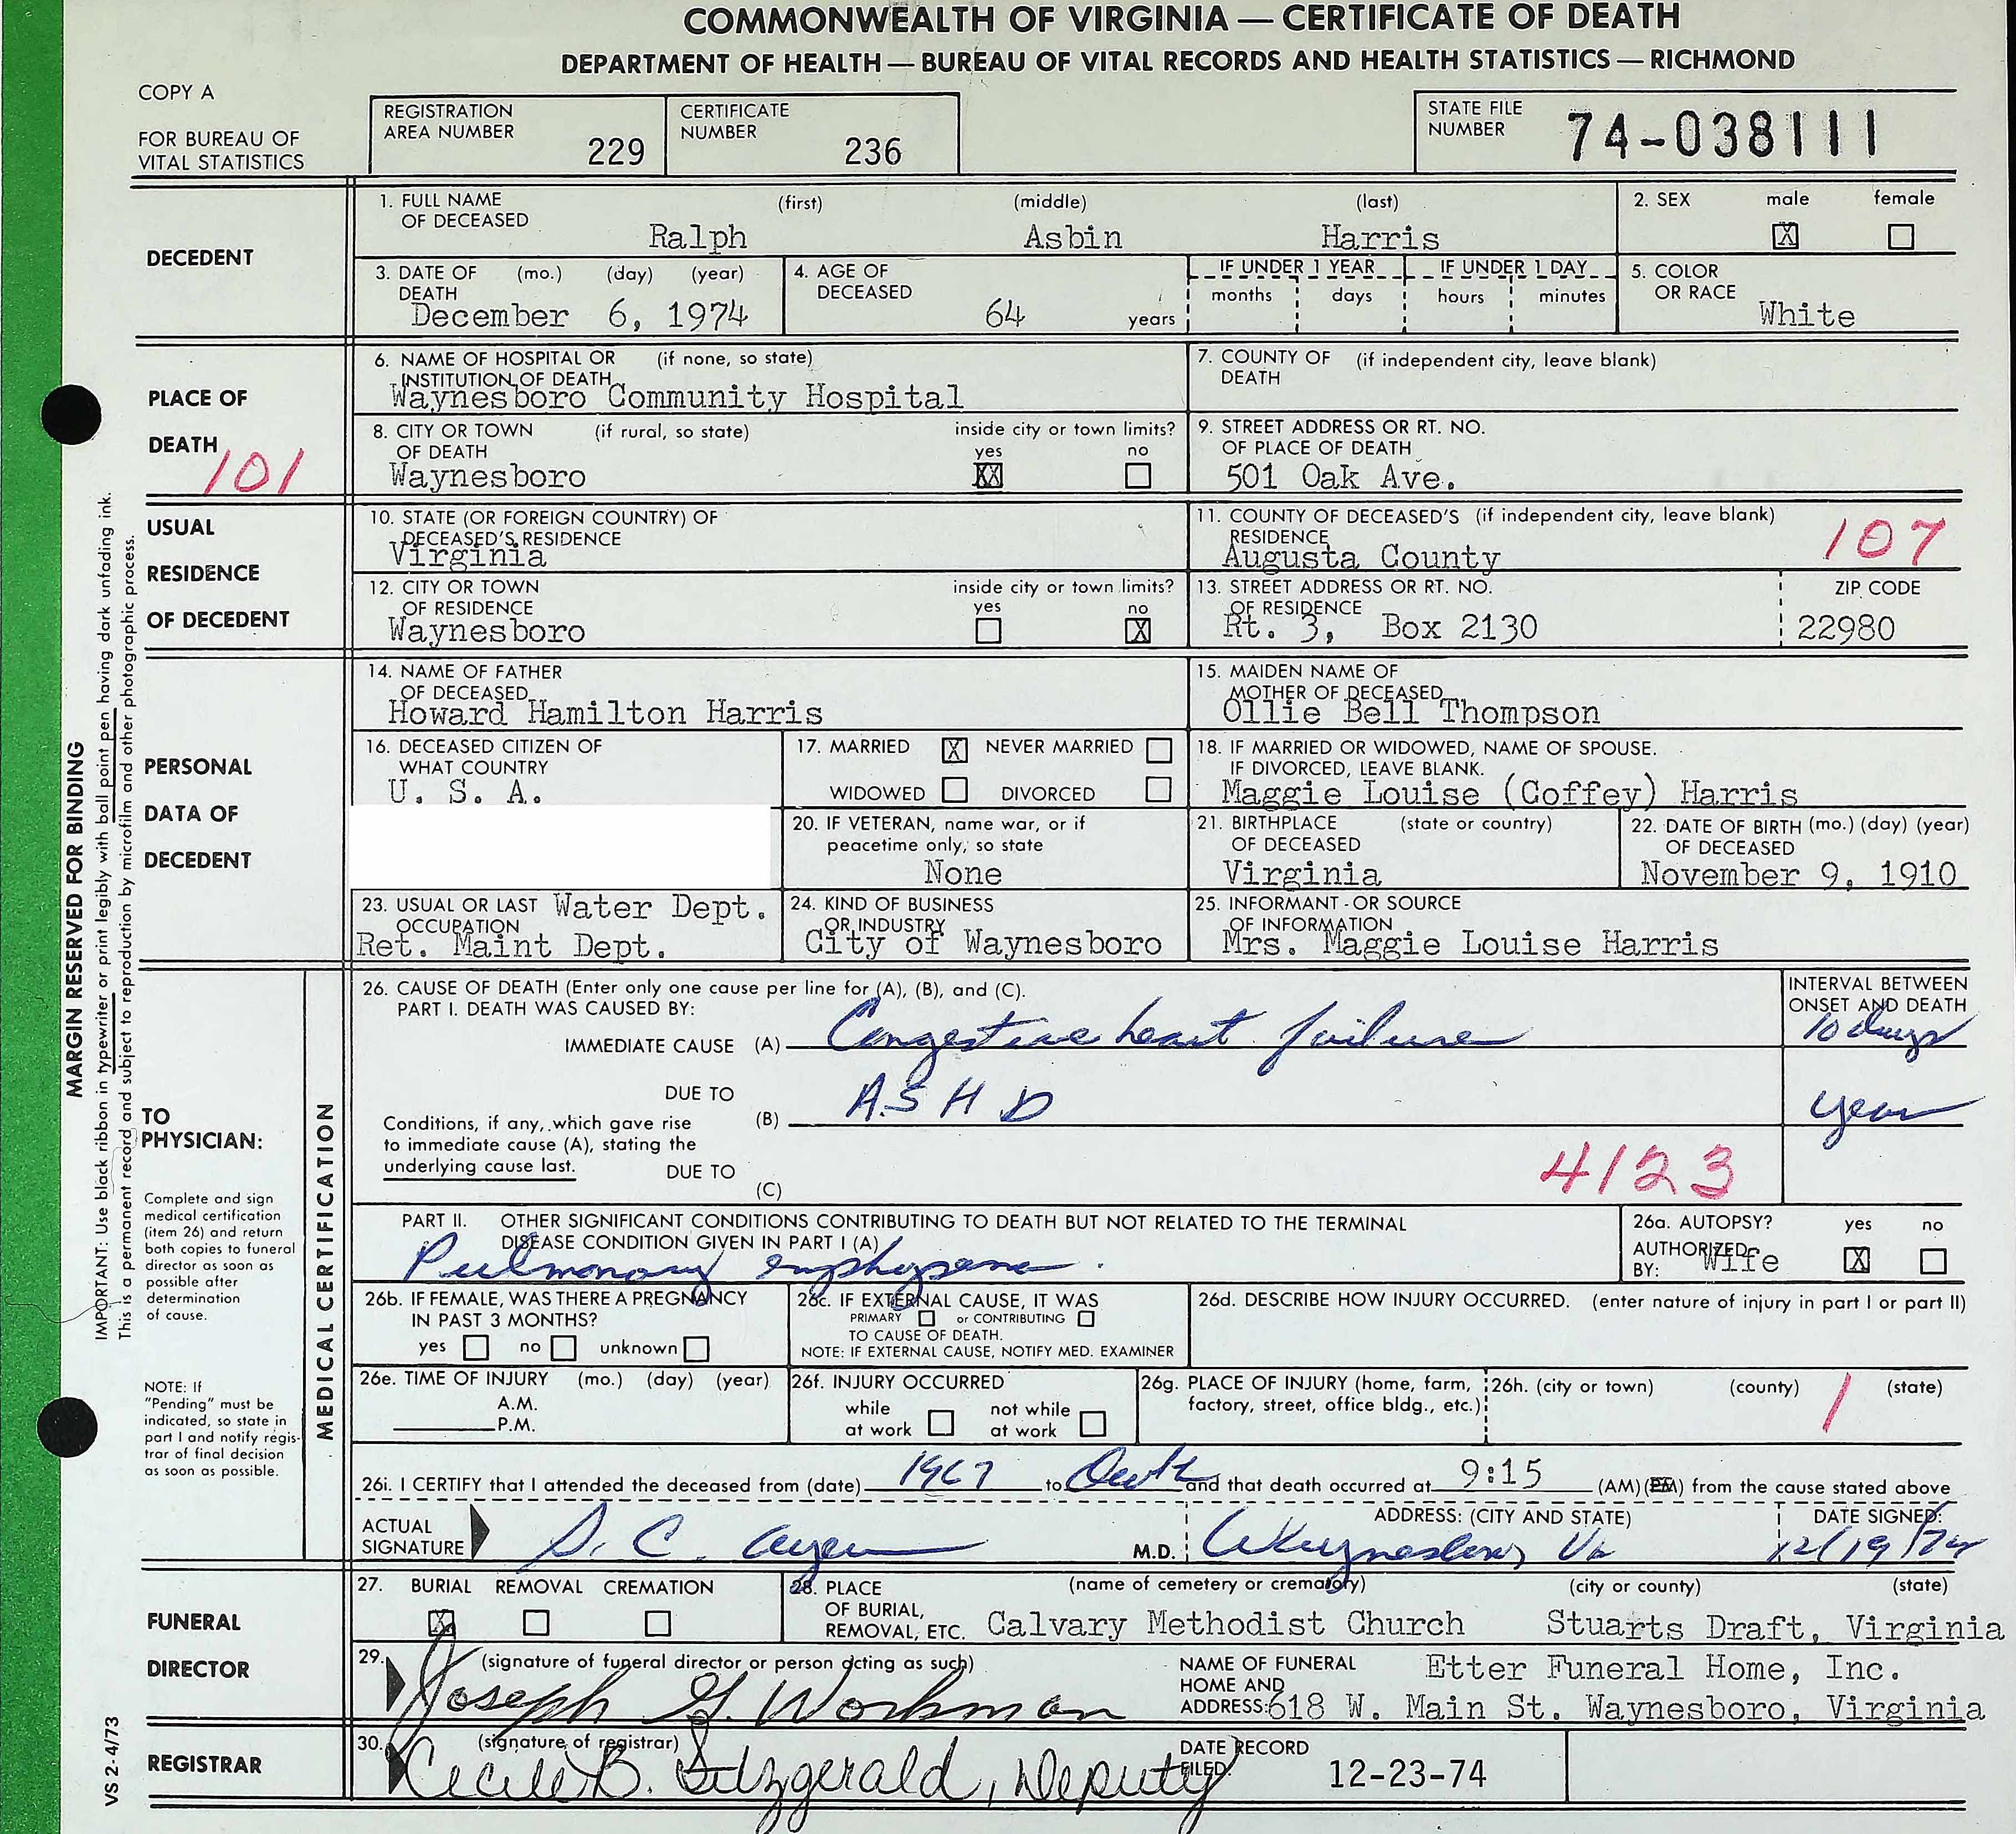 COMMONWEALTH OF VIRGINIA — CERTIFICATE OF DEATH
DEPARTMENT OF HEALTH — BUREAU OF VITAL RECORDS AND HEALTH STATISTICS — RICHMOND
COPY A
FOR BUREAU OF
VITAL STATISTICS
REGISTRATION
AREA NUMBER 229
CERTIFICATE
NUMBER 236
STATE FILE
NUMBER 74-038111
DECEDENT
1. FULL NAME (first) (middle) (last)
OF DECEASED
Ralph Asbin Harris
2. SEX male female
X
3. DATE OF (mo.) (day) (year)
DEATH
December 6, 1974
4. AGE OF
DECEASED
64 years
IF UNDER 1 YEAR IF UNDER 1 DAY
months days hours minutes
5. COLOR
OR RACE
White
PLACE OF
DEATH
101
6. NAME OF HOSPITAL OR (if none, so state)
INSTITUTION OF DEATH
Waynesboro Community Hospital
7. COUNTY OF (if independent city, leave blank)
DEATH
8. CITY OR TOWN (if rural, so state) inside city or town limits?
OF DEATH yes no
Waynesboro XX
9. STREET ADDRESS OR RT. NO.
OF PLACE OF DEATH
501 Oak Ave.
USUAL
RESIDENCE
OF DECEDENT
10. STATE (OR FOREIGN COUNTRY) OF
DECEASED'S RESIDENCE
Virginia
11. COUNTY OF DECEASED'S (if independent city, leave blank)
RESIDENCE 107
Augusta County
12. CITY OR TOWN inside city or town limits?
OF RESIDENCE yes no
Waynesboro X
13. STREET ADDRESS OR RT. NO. ZIP CODE
OF RESIDENCE
Rt. 3, Box 2130 22980
PERSONAL
DATA OF
DECEDENT
14. NAME OF FATHER
OF DECEASED
Howard Hamilton Harris
15. MAIDEN NAME OF
MOTHER OF DECEASED
Ollie Bell Thompson
16. DECEASED CITIZEN OF
WHAT COUNTRY
U. S. A.
17. MARRIED X NEVER MARRIED
WIDOWED DIVORCED
18. IF MARRIED OR WIDOWED, NAME OF SPOUSE.
IF DIVORCED, LEAVE BLANK.
Maggie Louise (Coffey) Harris
20. IF VETERAN, name war, or if
peacetime only, so state
None
21. BIRTHPLACE (state or country)
OF DECEASED
Virginia
22. DATE OF BIRTH (mo.) (day) (year)
OF DECEASED
November 9, 1910
23. USUAL OR LAST Water Dept.
OCCUPATION
Ret. Maint Dept.
24. KIND OF BUSINESS
OR INDUSTRY
City of Waynesboro
25. INFORMANT - OR SOURCE
OF INFORMATION
Mrs. Maggie Louise Harris
TO
PHYSICIAN:
Complete and sign
medical certification
(item 26) and return
both copies to funeral
director as soon as
possible after
determination
of cause.
NOTE: If
"Pending" must be
indicated, so state in
part I and notify regis-
trar of final decision
as soon as possible.
MEDICAL CERTIFICATION
26. CAUSE OF DEATH (Enter only one cause per line for (A), (B), and (C).
PART I. DEATH WAS CAUSED BY:
INTERVAL BETWEEN
ONSET AND DEATH
IMMEDIATE CAUSE (A) Congestive heart failure 10 days
DUE TO
(B) ASHD year
Conditions, if any, which gave rise
to immediate cause (A), stating the
underlying cause last. DUE TO
(C)
4123
PART II. OTHER SIGNIFICANT CONDITIONS CONTRIBUTING TO DEATH BUT NOT RELATED TO THE TERMINAL
DISEASE CONDITION GIVEN IN PART I (A)
Pulmonary emphysema.
26a. AUTOPSY? yes no
AUTHORIZED
BY: Wife X
26b. IF FEMALE, WAS THERE A PREGNANCY
IN PAST 3 MONTHS?
yes no unknown
26c. IF EXTERNAL CAUSE, IT WAS
PRIMARY or CONTRIBUTING
TO CAUSE OF DEATH.
NOTE: IF EXTERNAL CAUSE, NOTIFY MED. EXAMINER
26d. DESCRIBE HOW INJURY OCCURRED. (enter nature of injury in part I or part II)
26e. TIME OF INJURY (mo.) (day) (year)
A.M.
P.M.
26f. INJURY OCCURRED
while not while
at work at work
26g. PLACE OF INJURY (home, farm,
factory, street, office bldg., etc.)
26h. (city or town) (county) (state)
1
26i. I CERTIFY that I attended the deceased from (date) 1967 to Death and that death occurred at 9:15 (AM) (PM) from the cause stated above
ACTUAL
SIGNATURE S. C. M.D.
ADDRESS: (CITY AND STATE)
Waynesboro, Va
DATE SIGNED:
12/19/74
FUNERAL
DIRECTOR
27. BURIAL REMOVAL CREMATION
X
28. PLACE (name of cemetery or crematory) (city or county) (state)
OF BURIAL,
REMOVAL, ETC. Calvary Methodist Church Stuarts Draft, Virginia
29. (signature of funeral director or person acting as such)
Joseph G. Workman
NAME OF FUNERAL Etter Funeral Home, Inc.
HOME AND
ADDRESS: 618 W. Main St. Waynesboro, Virginia
REGISTRAR
30. (signature of registrar)
Cecile B. Fitzgerald, Deputy
DATE RECORD
FILED: 12-23-74
MARGIN RESERVED FOR BINDING
IMPORTANT: Use black ribbon in typewriter or print legibly with ball point pen having dark unfading ink.
This is a permanent record and subject to reproduction by microfilm and other photographic process.
VS 2-4/73